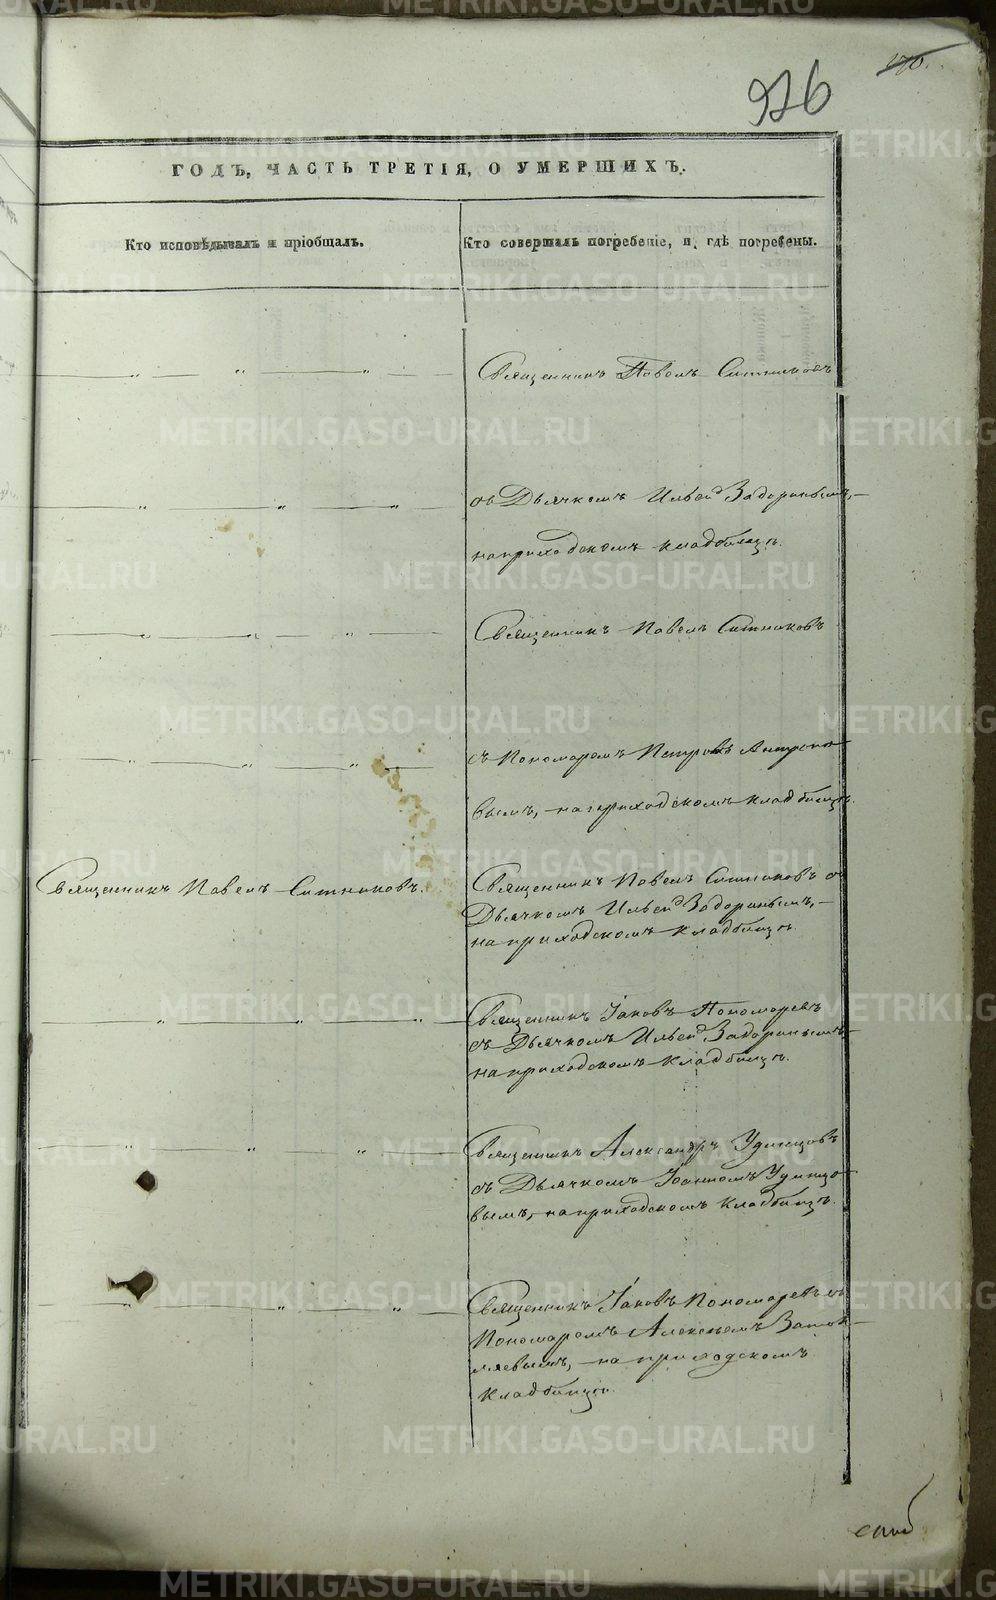 170.
926
ГОДЪ, ЧАСТЬ ТРЕТІЯ, О УМЕРШИХЪ.
Кто исповѣдывалъ и пріобщалъ.
Кто совершалъ погребеніе, и гдѣ погребены.
Священникъ Павелъ Ситниковъ
съ Дьячкомъ Ильей Задоринымъ,
на приходскомъ кладбищѣ.
Священникъ Павелъ Ситниковъ
съ Пономаремъ Петромъ
вымъ, на приходскомъ кладбищѣ.
Священникъ Павелъ Ситниковъ.
Священникъ Павелъ Ситниковъ съ
Дьячкомъ Ильей Задоринымъ,
на приходскомъ кладбищѣ.
Священникъ Іаковъ Пономаревъ
съ Дьячкомъ Ильей Задоринымъ,
на приходскомъ кладбищѣ.
Священникъ Александръ Удинцовъ
съ Дьячкомъ Іоанномъ Удинцо-
вымъ, на приходскомъ кладбищѣ.
Священникъ Іаковъ Пономаревъ съ
Пономаремъ Алексѣемъ
на приходскомъ
кладбищѣ.
METRIKI.GASO-URAL.RU